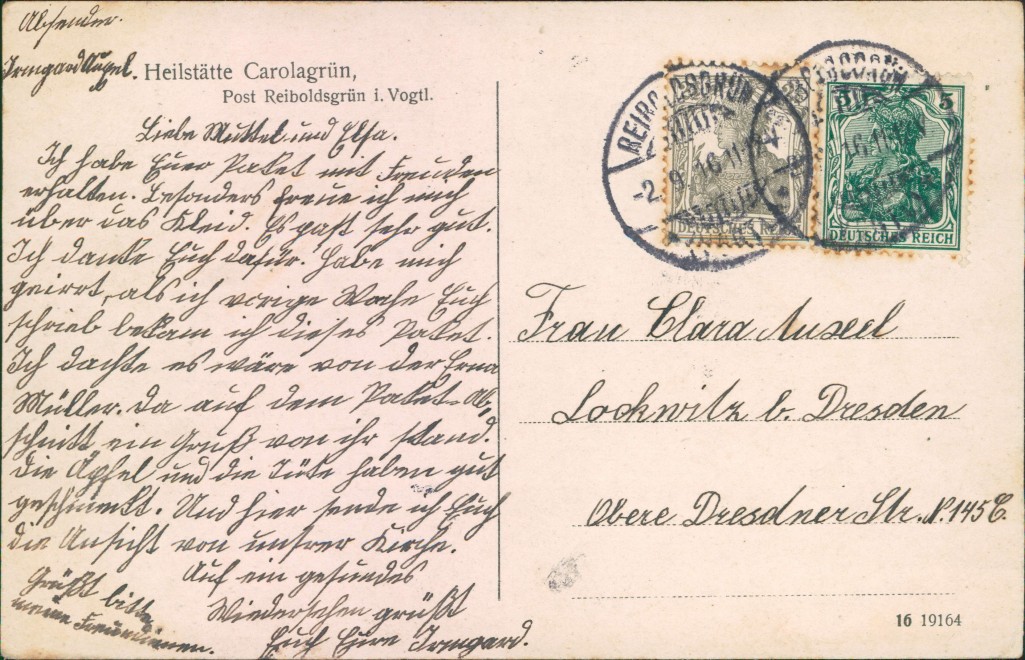 Absender.
Irmgard
Heilstätte Carolagrün,
Post Reiboldsgrün i. Vogtl.
Liebe Muttel und Elsa.
Ich habe Euer Paket mit Freuden
erhalten. Besonders freue ich mich
über das Kleid. Es past sehr gut.
Ich danke Euch dafür. Habe mich
geirrt, als ich vorige Woche Euch
schrieb bekam ich dieses Paket.
Ich dachte es wäre von der Erna
Müller. Da auf dem Paket-Ab,
schnitt ein Gruß von ihr stand.
Die Äpfel und die Tüte haben gut
geschmeckt. Und hier sende ich Euch
die Ansicht von unsrer Kirche.
Auf ein gesundes
Wiedersehen grüßt
Euch Eure Irmgard.
Grüßt bitte
meine Freundinnen.
REIBOLDSGRÜN
-2. 9. 16. 11-12
DEUTSCHES REICH
5
DEUTSCHES REICH
Frau Clara
Lockwitz b. Dresden
Obere Dresdner Str. № 145 C.
16 19164